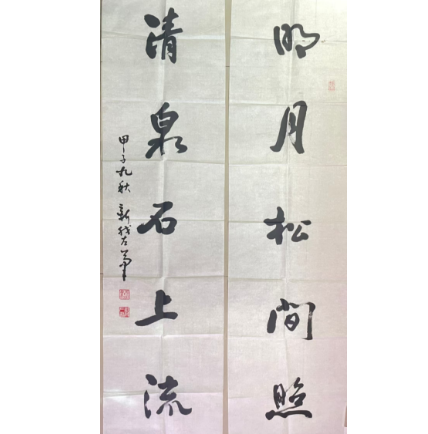 明月松间照
清泉石上流
甲子九秋 新